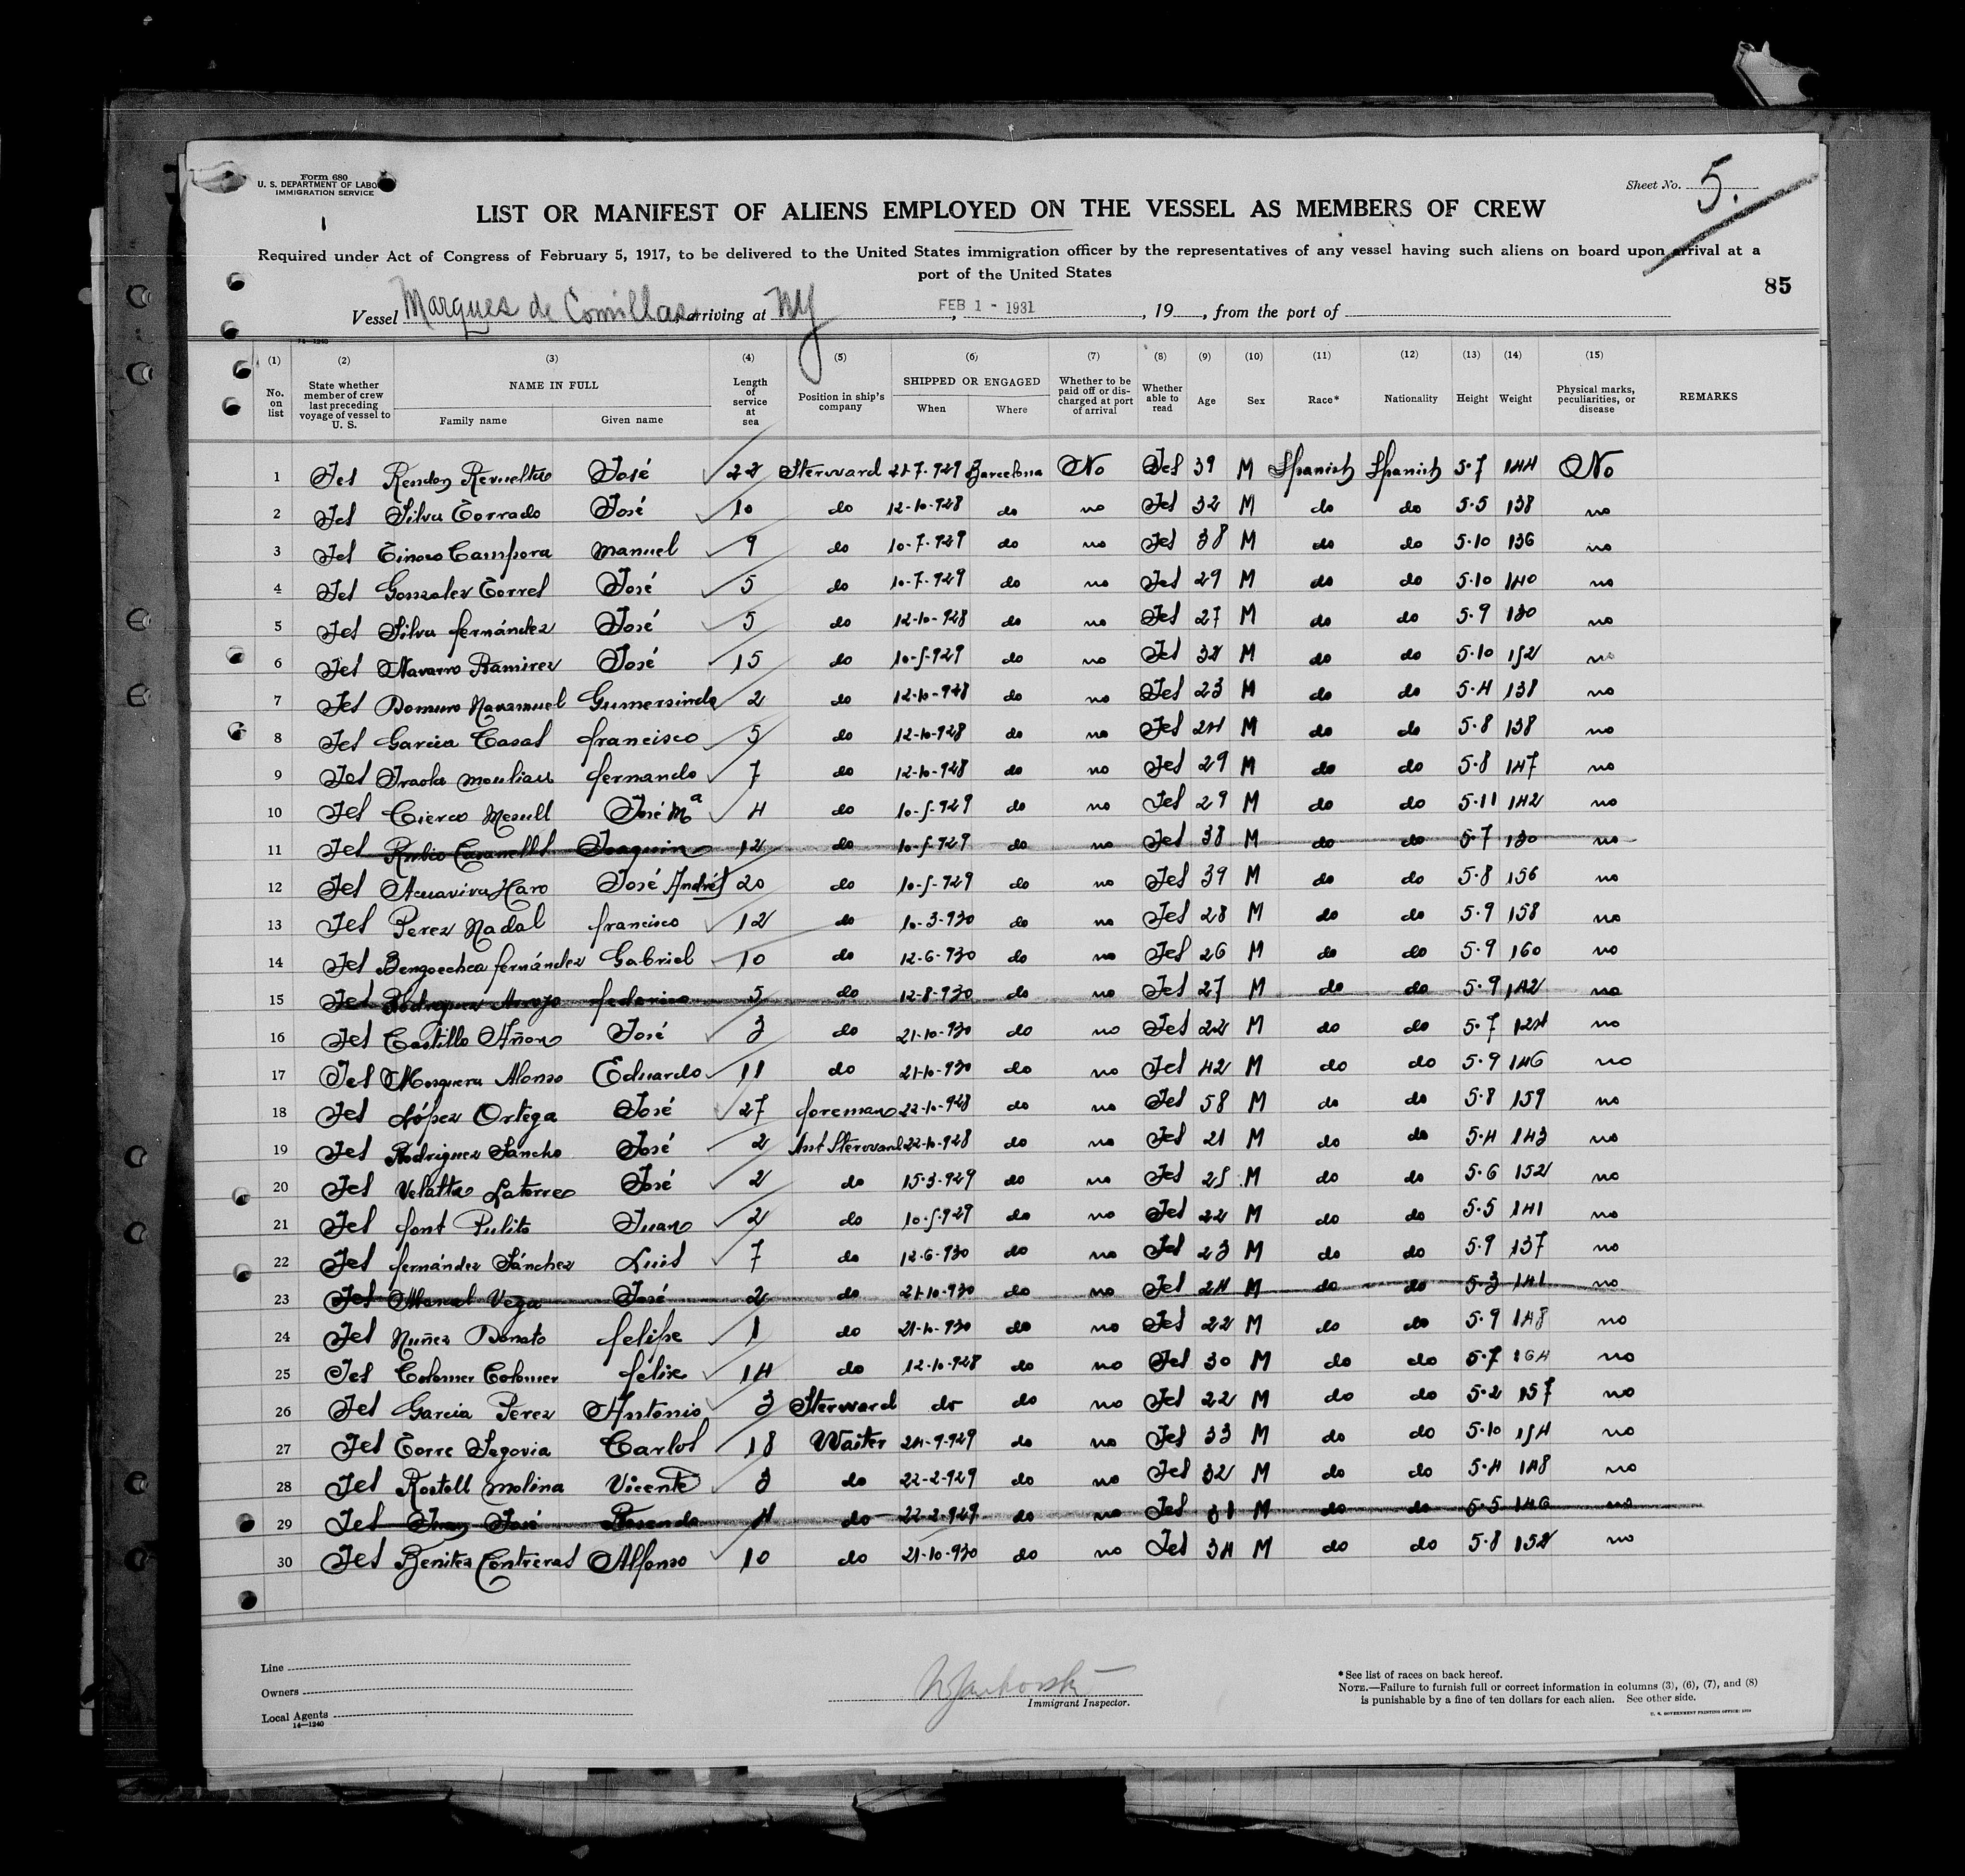 Form 680
U. S. DEPARTMENT OF LABO
IMMIGRATION SERVICE
Sheet No. 5.
1
LIST OR MANIFEST OF ALIENS EMPLOYED ON THE VESSEL AS MEMBERS OF CREW
Required under Act of Congress of February 5, 1917, to be delivered to the United States immigration officer by the representatives of any vessel having such aliens on board upon arrival at a
port of the United States
85
Vessel Marques de Comillas, arriving at NY, FEB 1 - 1931, 19 , from the port of
14—1240
(1) (2) (3) (4) (5) (6) (7) (8) (9) (10) (11) (12) (13) (14) (15)
No. on list State whether member of crew last preceding voyage of vessel to U. S. NAME IN FULL Family name Given name Length of service at sea Position in ship's company SHIPPED OR ENGAGED When Where Whether to be paid off or discharged at port of arrival Whether able to read Age Sex Race* Nationality Height Weight Physical marks, peculiarities, or disease REMARKS
1 Jes Rendon Revuelta José 22 Sterward 21-7-929 Barcelona No Jes 39 M Spanish Spanish 5·7 144 No
2 Jes Silva Torrado José 10 do 12-10-928 do no Jes 32 M do do 5·5 138 no
3 Jes Tinoco Campora Manuel 9 do 10-7-929 do no Jes 38 M do do 5·10 136 no
4 Jes Gonzalez Torres José 5 do 10-7-929 do no Jes 29 M do do 5·10 140 no
5 Jes Silva fernández José 5 do 12-10-928 do no Jes 27 M do do 5·9 130 no
6 Jes Navarro Ramirez José 15 do 10-5-929 do no Jes 32 M do do 5·10 152 no
7 Jes Gumersindo 2 do 12-10-928 do no Jes 23 M do do 5·4 138 no
8 Jes Garcia Casas francisco 5 do 12-10-928 do no Jes 24 M do do 5·8 138 no
9 Jes Iraola Mouliau fernando 7 do 12-10-928 do no Jes 29 M do do 5·8 147 no
10 Jes Cierco José Mª 4 do 10-5-929 do no Jes 29 M do do 5·11 142 no
11 Jes Rubio Casanells Joaquin 12 do 10-5-929 do no Jes 38 M do do 5·7 130 no
12 Jes Acuaviva Haro José Andrés 20 do 10-5-929 do no Jes 39 M do do 5·8 156 no
13 Jes Perez Nadal francisco 12 do 10-3-930 do no Jes 28 M do do 5·9 158 no
14 Jes Bengoechea fernández Gabriel 10 do 12-6-930 do no Jes 26 M do do 5·9 160 no
15 Jes Rodriguez Arroyo federico 5 do 12-8-930 do no Jes 27 M do do 5·9 142 no
16 Jes Castillo Añon José 3 do 21-10-930 do no Jes 22 M do do 5·7 124 no
17 Jes Mosquera Alonso Eduardo 11 do 21-10-930 do no Jes 42 M do do 5·9 146 no
18 Jes López Ortega José 27 foreman 22-10-928 do no Jes 58 M do do 5·8 159 no
19 Jes Rodriguez Sancho José 2 Asst Sterward 22-10-928 do no Jes 21 M do do 5·4 143 no
20 Jes Latorre José 2 do 15-3-929 do no Jes 25 M do do 5·6 152 no
21 Jes font Pulito Juan 2 do 10-5-929 do no Jes 22 M do do 5·5 141 no
22 Jes fernández Sánchez Luis 7 do 12-6-930 do no Jes 23 M do do 5·9 137 no
23 Jes Vega José 2 do 21-10-930 do no Jes 24 M do do 5·3 141 no
24 Jes Nuñez Donato felipe 1 do 21-10-930 do no Jes 22 M do do 5·9 148 no
25 Jes Colomer Colomer félix 14 do 12-10-928 do no Jes 30 M do do 5·7 164 no
26 Jes Garcia Perez Antonio 3 Sterward do do no Jes 22 M do do 5·2 157 no
27 Jes Torre Segovia Carlos 18 Waiter 24-9-929 do no Jes 33 M do do 5·10 154 no
28 Jes Rostoll Molina Vicente 3 do 22-2-929 do no Jes 32 M do do 5·4 148 no
29 Jes Juan José Rosendo 4 do 22-2-929 do no Jes 31 M do do 5·5 146 no
30 Jes Benitez Contreras Alfonso 10 do 21-10-930 do no Jes 34 M do do 5·8 152 no
Line
Owners
Local Agents
14—1240
Immigrant Inspector.
*See list of races on back hereof.
NOTE.—Failure to furnish full or correct information in columns (3), (6), (7), and (8)
is punishable by a fine of ten dollars for each alien. See other side.